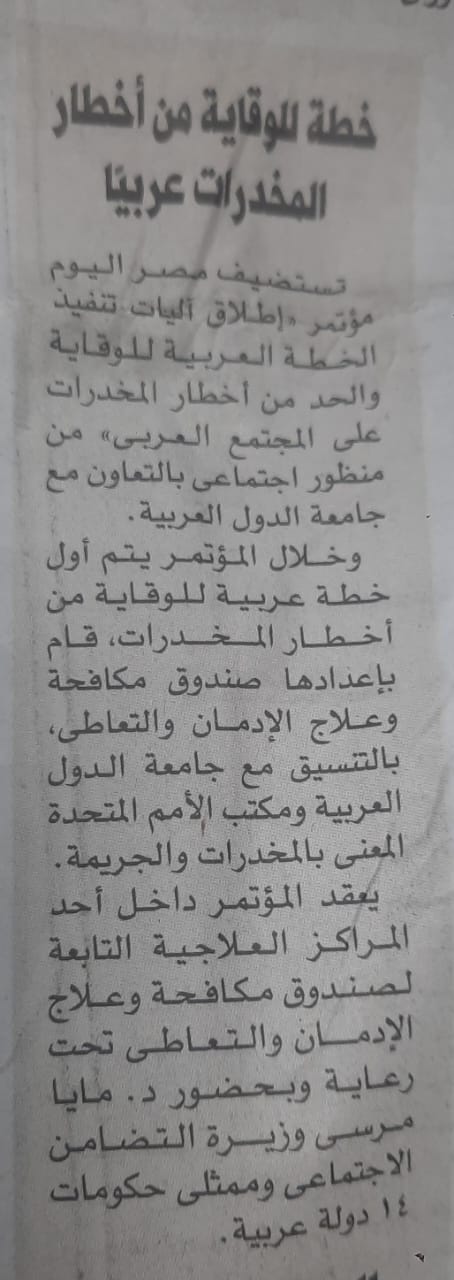 خطة للوقاية من أخطار
المخدرات عربيًا
تستضيف مصر اليوم
مؤتمر «إطلاق آليات تنفيذ
الخطة العربية للوقاية
والحد من أخطار المخدرات
على المجتمع العربى» من
منظور اجتماعى بالتعاون مع
جامعة الدول العربية.
وخلال المؤتمر يتم أول
خطة عربية للوقاية من
أخطار المخدرات، قام
بإعدادها صندوق مكافحة
وعلاج الإدمان والتعاطى،
بالتنسيق مع جامعة الدول
العربية ومكتب الأمم المتحدة
المعنى بالمخدرات والجريمة.
يعقد المؤتمر داخل أحد
المراكز العلاجية التابعة
لصندوق مكافحة وعلاج
الإدمان والتعاطى تحت
رعاية وبحضور د. مايا
مرسى وزيرة التضامن
الاجتماعى وممثلى حكومات
١٤ دولة عربية.